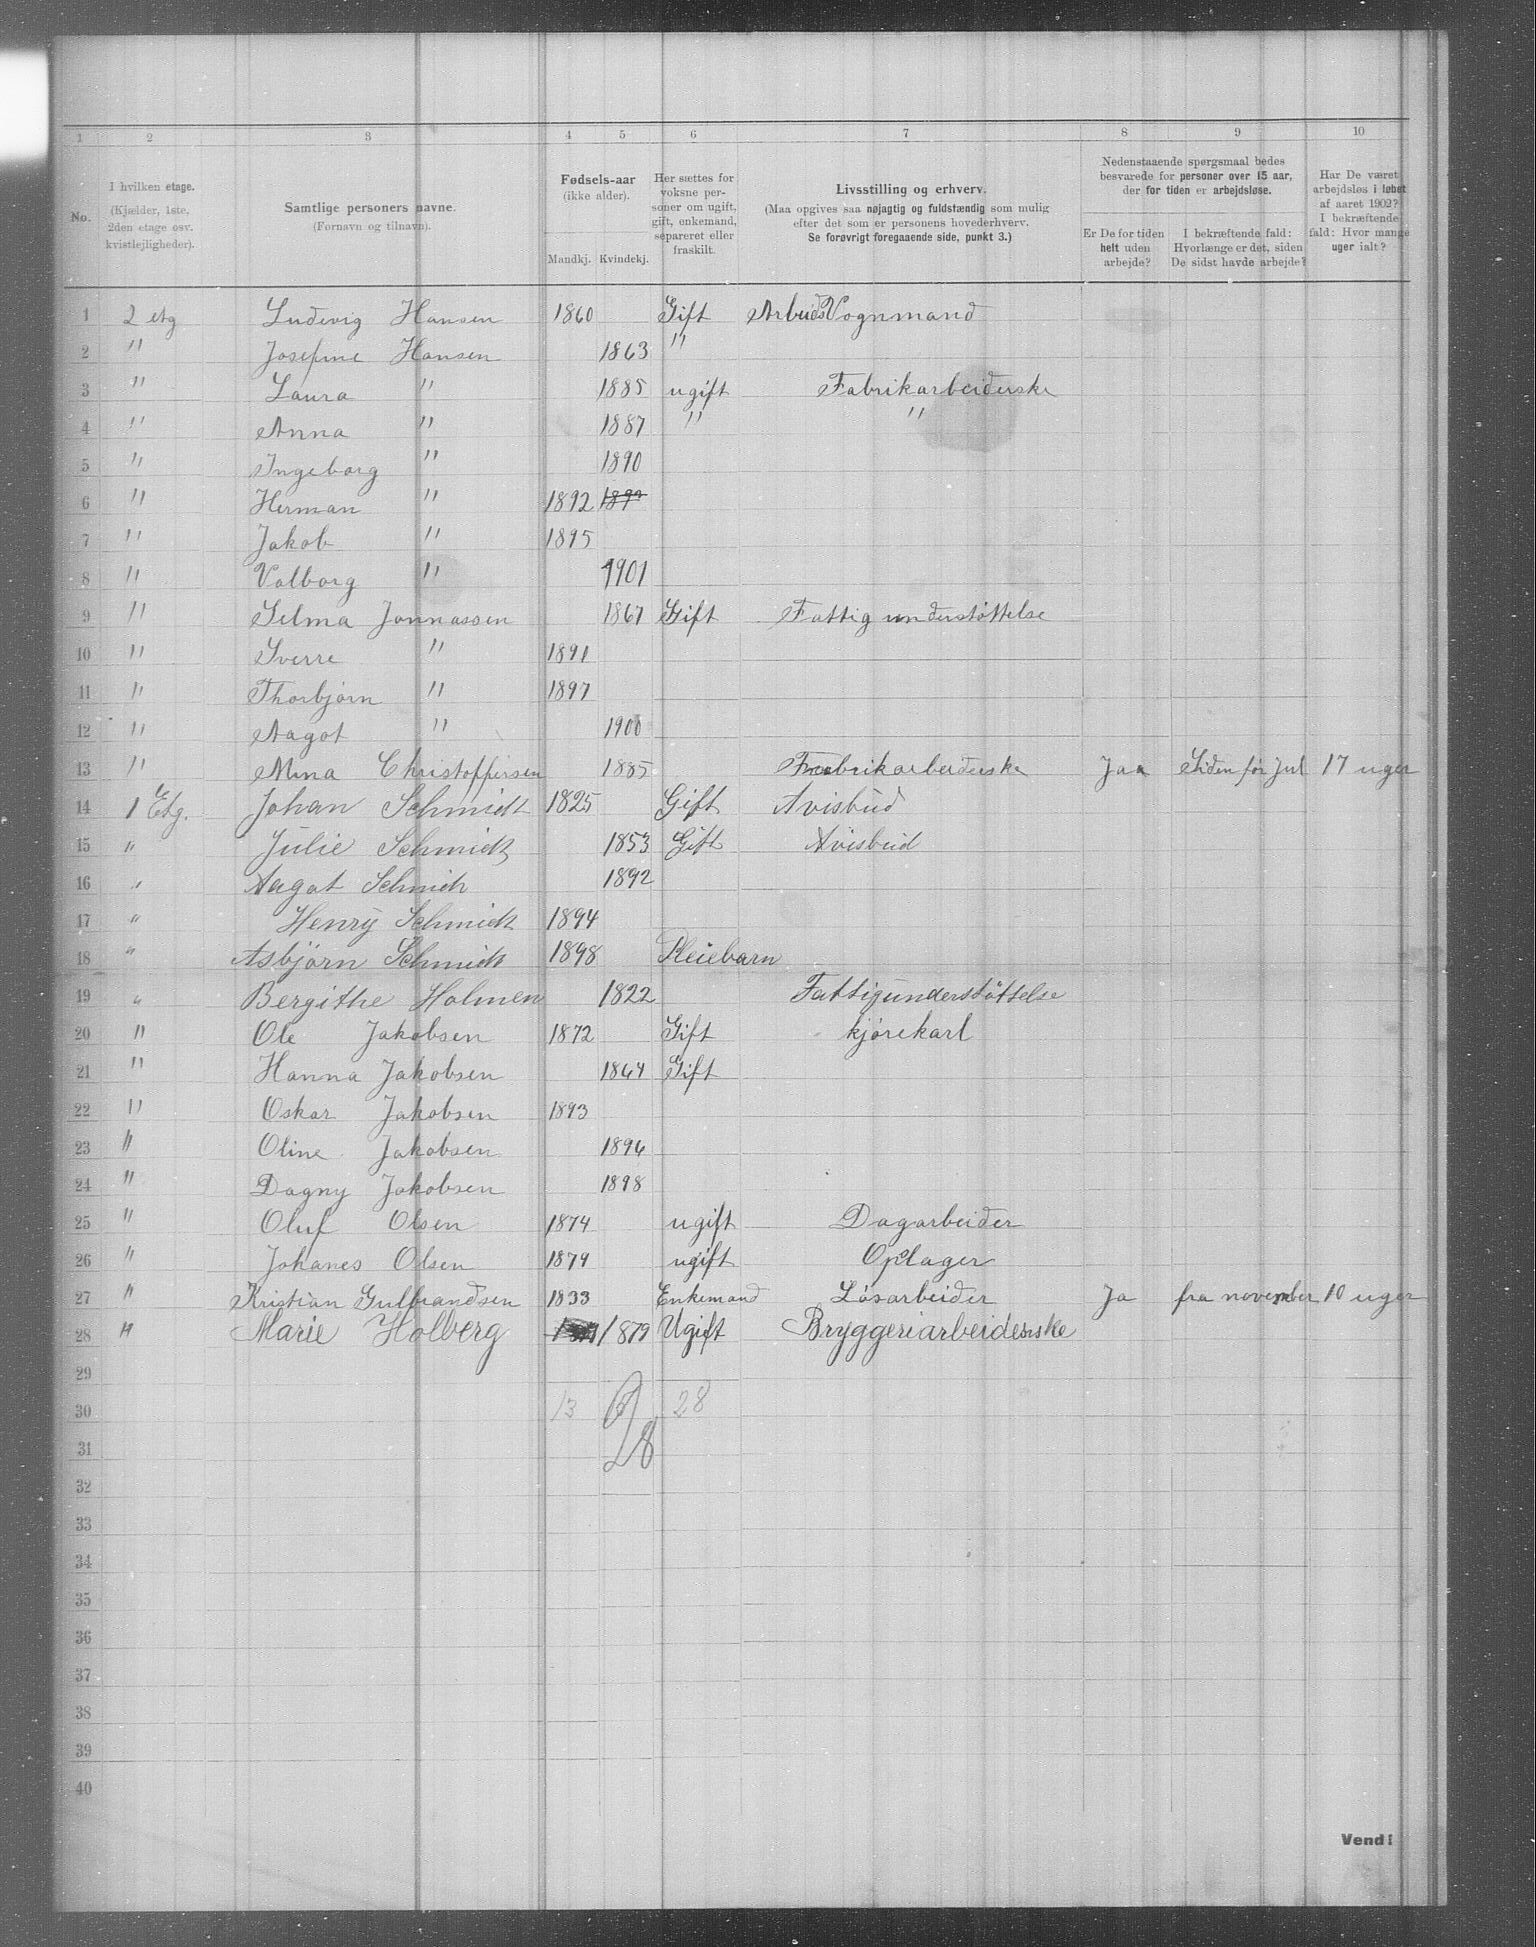 1 2 3 4 5 6 7 8 9 10
No. I hvilken etage. (Kjælder, 1ste, 2den etage osv. kvistlejligheder). Samtlige personers navne. (Fornavn og tilnavn). Fødsels-aar (ikke alder). Mandkj. Kvindekj. Her sættes for voksne personer om ugift, gift, enkemand, separeret eller fraskilt. Livsstilling og erhverv. (Maa opgives saa nøjagtig og fuldstændig som mulig efter det som er personens hovederhverv. Se forøvrigt foregaaende side, punkt 3.) Nedenstaaende spørgsmaal bedes besvarede for personer over 15 aar, der for tiden er arbejdsløse. Er De for tiden helt uden arbejde? I bekræftende fald: Hvorlænge er det, siden De sidst havde arbejde? Har De været arbejdsløs i løbet af aaret 1902? I bekræftende fald: Hvor mange uger ialt?
1 2 etg Ludevig Hansen 1860 Gift Arbeids Vognmand
2 " Josefine Hansen 1863 "
3 " Laura " 1885 ugift Fabrikarbeiderske
4 " Anna " 1887 " "
5 " Ingeborg " 1890
6 " Herman " 1892
7 " Jakob " 1895
8 " Valborg " 1901
9 " Selma Jonnassen 1867 Gift Fattig understøttelse
10 " Sverre " 1891
11 " Thorbjørn " 1897
12 " Aagot " 1900
13 " Mina Christoffersen 1885 Fabrikarbeiderske Jaa Siden før Jul 17 uger
14 1 Etg. Johan Schmidt 1825 Gift Avisbud
15 " Julie Schmidt 1853 Gift Avisbud
16 " Aagot Schmidt 1892
17 " Henry Schmidt 1894
18 " Asbjørn Schmidt 1898 Pleiebarn
19 " Bergithe Holmen 1822 Fattigunderstøttelse
20 " Ole Jakobsen 1872 Gift kjørekarl
21 " Hanna Jakobsen 1864 Gift
22 " Oskar Jakobsen 1893
23 " Oline Jakobsen 1896
24 " Dagny Jakobsen 1898
25 " Oluf Olsen 1874 ugift Dagarbeider
26 " Johanes Olsen 1879 ugift Oplager
27 " Kristian Gulbrandsen 1833 Enkemand Løsarbeider Ja fra november 10 uger
28 " Marie Holberg 1879 Ugift Bryggeriarbeiderske
29
30 13 28
31 28
32
33
34
35
36
37
38
39
40
Vend!